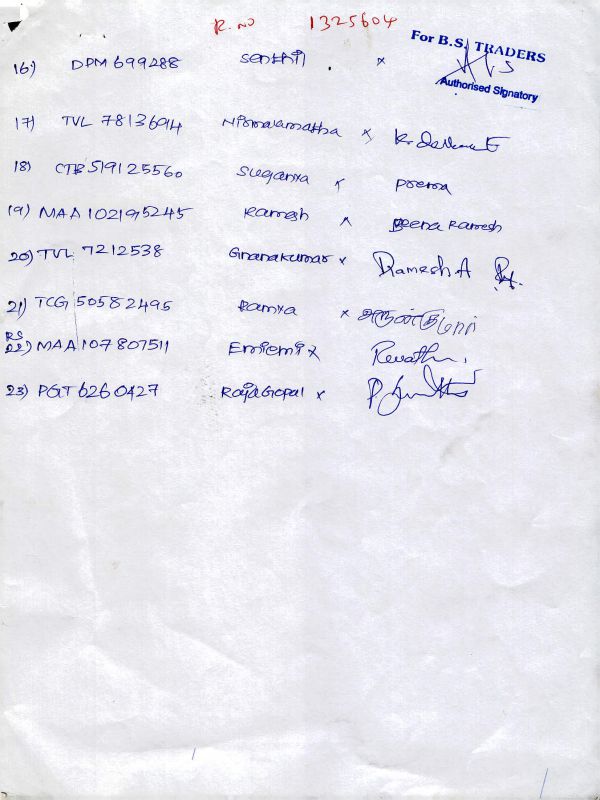 R. NO 1325604
For B.S. TRADERS
Authorised Signatory
16) DPM 699288 Senthil x
17) TVL 7813694 Nirmalamatha x
18) CTB 519125560 Suganya x Prema
19) MAA 102195245 Ramesh x Beena Ramesh
20) TVL 7212538 Gnanakumar x Ramesh A
21) TCG 50582495 Ramya x
RS
22) MAA 107807511 x Revathi
23) PGT 6260427 RajaGopal x